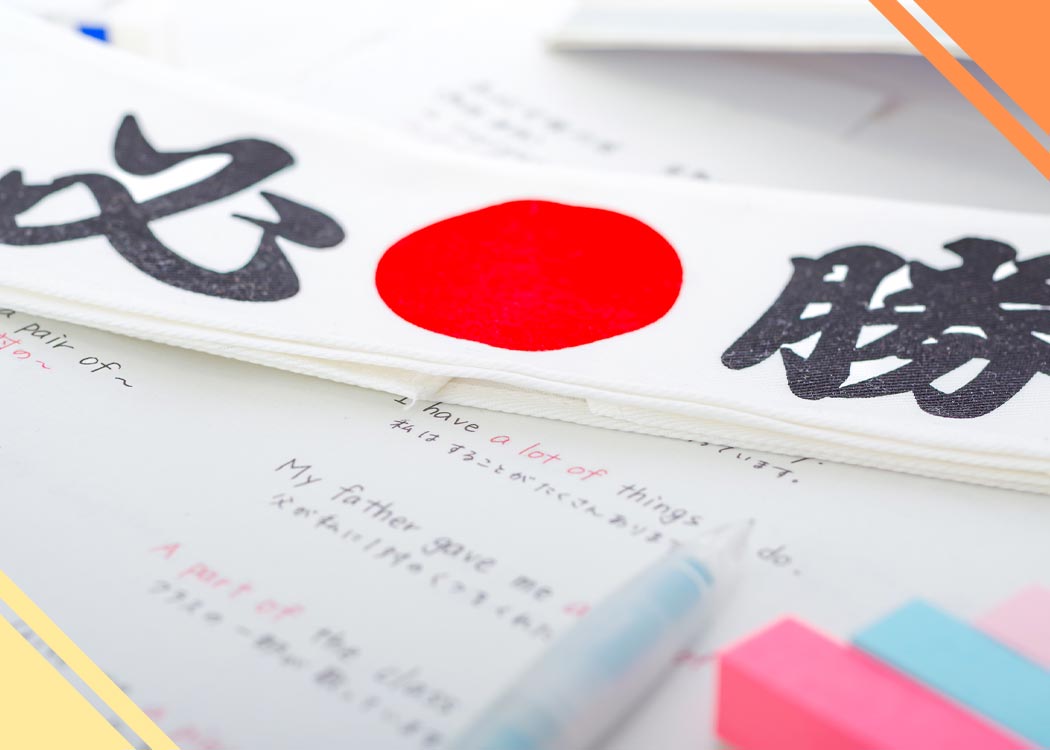 必 勝
a pair of~
対の~
I have a lot of things do.
私はすることがたくさんありま
ています。
My father gave me a
父が私に1対のくつをくれた
A part of the class
クラスの一部が